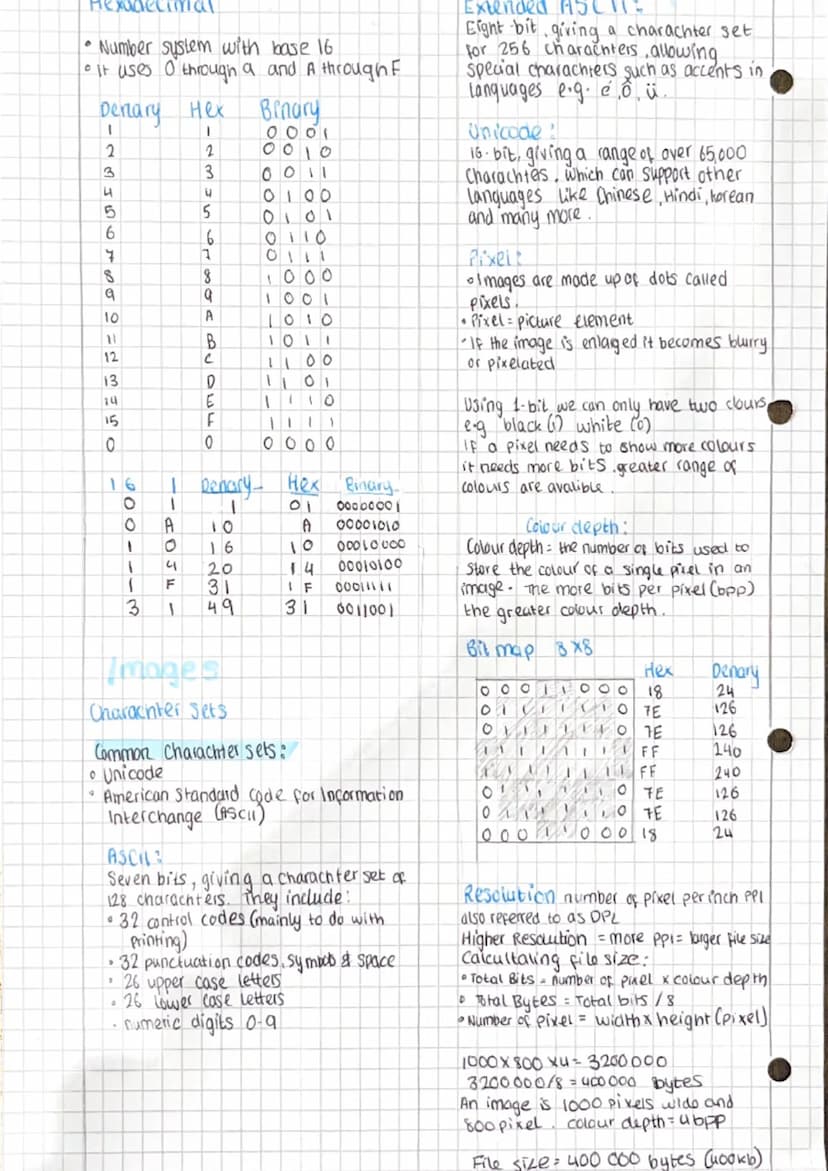 Hexadecimal
• Number system with base 16
• It uses 0 through 9 and A through F
Denary Hex Binary
1 1 0001
2 2 0010
3 3 0011
4 4 0100
5 5 0101
6 6 0110
7 7 0111
8 8 1000
9 9 1001
10 A 1010
11 B 1011
12 C 1100
13 D 1101
14 E 1110
15 F 1111
0 0 0000
16 1 Denary Hex Binary
0 1 1 01 00000001
0 A 10 A 00001010
1 0 16 10 00010000
1 4 20 14 00010100
1 F 31 1F 00011111
3 1 49 31 0011001
Images
Charachter Sets
Common Charachter sets:
• Unicode
• American Standard Code for Information
Interchange (ASCII)
ASCII:
Seven bits, giving a charachter set of
128 charachters. They include:
• 32 control codes (mainly to do with
Printing)
• 32 punctuation codes, symbols & space
• 26 upper case letters
• 26 lower case letters
• numeric digits 0-9
Extended ASCII:
Eight-bit, giving a charachter set
for 256 charachters, allowing
special charachters such as accents in
languages e.g. é, ô, ü.
Unicode:
16-bit, giving a range of over 65,000
Charachtes, which can support other
languages like Chinese, Hindi, Korean
and many more.
Pixel:
• Images are made up of dots called
pixels.
• Pixel = picture element
• If the image is enlarged it becomes blurry
or pixelated
Using 1-bit we can only have two clours
e.g black (1) white (0)
If a pixel needs to show more colours
it needs more bits, greater range of
colours are avalible.
Colour depth:
Colour depth = the number of bits used to
store the colour of a single pixel in an
image. The more bits per pixel (bpp)
the greater colour depth.
Bit map 8x8
Hex Denary
0 0 0 1 1 0 0 0 18 24
0 1 1 1 1 1 1 0 7E 126
0 1 1 1 1 1 1 0 7E 126
1 1 1 1 1 1 1 1 FF 240
1 1 1 1 1 1 1 1 FF 240
0 1 1 1 1 1 1 0 7E 126
0 1 1 1 1 1 1 0 7E 126
0 0 0 1 1 0 0 0 18 24
Resolution number of pixel per inch PPI
also referred to as DPI
Higher Resolution = more PPI = larger file size
Calcultaling file size:
• Total Bits = number of pixel x colour depth
• Total Bytes = Total bits / 8
• Number of pixel = width x height (pixel)
1000 x 800 x 4 = 3200 000
3200 000/8 = 400 000 bytes
An image is 1000 pixels wide and
800 pixel. colour depth = 4 bpp
File size = 400 000 bytes (400kb)